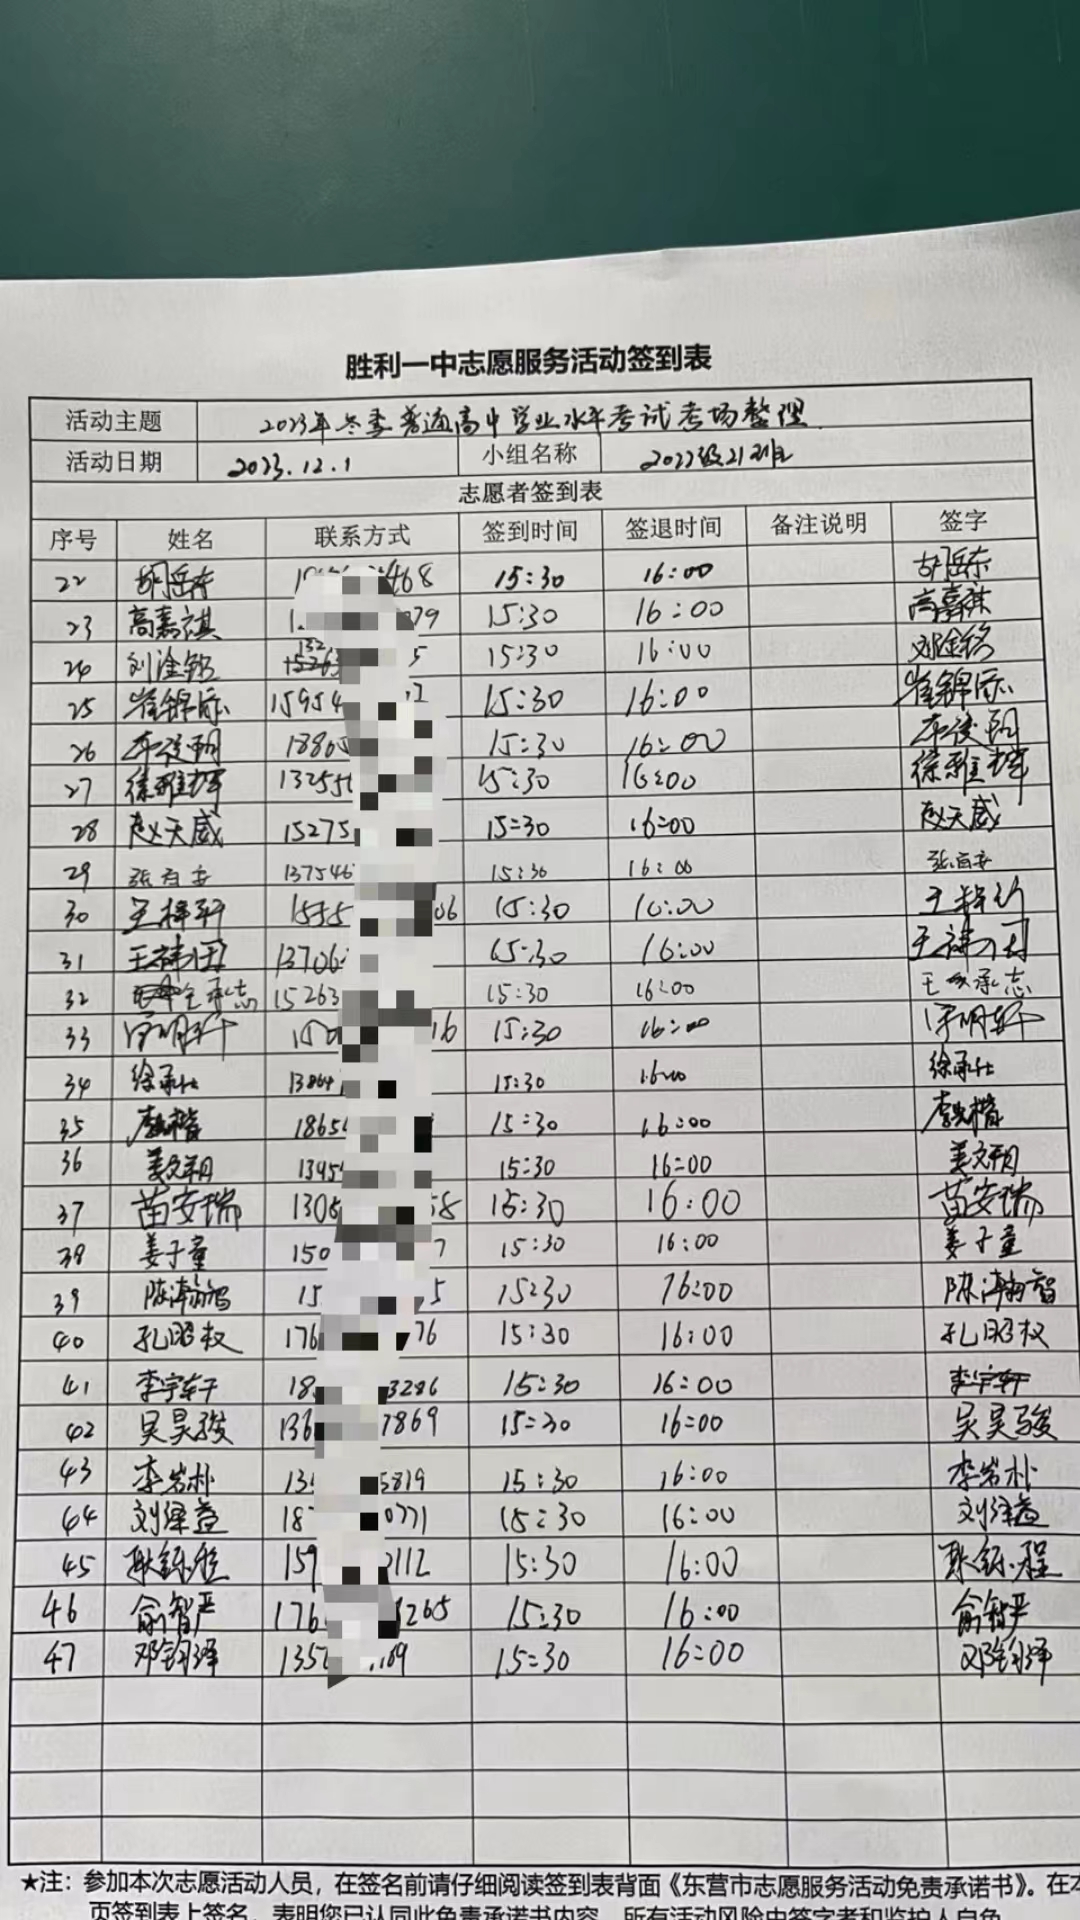 胜利一中志愿服务活动签到表
活动主题 2023年冬季普通高中学业水平考试考场整理
活动日期 2023.12.1 小组名称 2022级21班
志愿者签到表
序号 姓名 联系方式 签到时间 签退时间 备注说明 签字
22 胡岳东 468 15:30 16:00 胡岳东
23 高嘉祺 79 15:30 16:00 高嘉祺
24 15:30 16:00
25 崔锦 15954 15:30 16:00 崔锦
26 1886 15:30 16:00
27 徐雅辉 13255 15:30 16:00 徐雅辉
28 赵天威 15275 15:30 16:00 赵天威
29 张百安 137546 15:30 16:00 张百安
30 王梓轩 155 06 15:30 16:00 王梓轩
31 王祎 13706 15:30 16:00 王祎
32 王承志 15263 15:30 16:00 王承志
33 明轩 150 16 15:30 16:00 明轩
34 徐承仕 13864 15:30 16:00 徐承仕
35 楷 1865 15:30 16:00 楷
36 姜文朔 1395 15:30 16:00 姜文朔
37 苗安瑞 1305 58 15:30 16:00 苗安瑞
38 姜子童 150 7 15:30 16:00 姜子童
39 陈瀚智 15 5 15:30 16:00 陈瀚智
40 孔昭权 176 76 15:30 16:00 孔昭权
41 李宇轩 18 3286 15:30 16:00 李宇轩
42 吴昊骏 136 7869 15:30 16:00 吴昊骏
43 李岩朴 13 5819 15:30 16:00 李岩朴
44 刘泽益 18 0771 15:30 16:00 刘泽益
45 耿铄程 159 2112 15:30 16:00 耿铄程
46 俞智严 176 265 15:30 16:00 俞智严
47 邓钧泽 135 189 15:30 16:00 邓钧泽
★注：参加本次志愿活动人员，在签名前请仔细阅读签到表背面《东营市志愿服务活动免责承诺书》。在本
页签到表上签名，表明您已认同此免责承诺书内容，所有活动风险由签字者和监护人自负